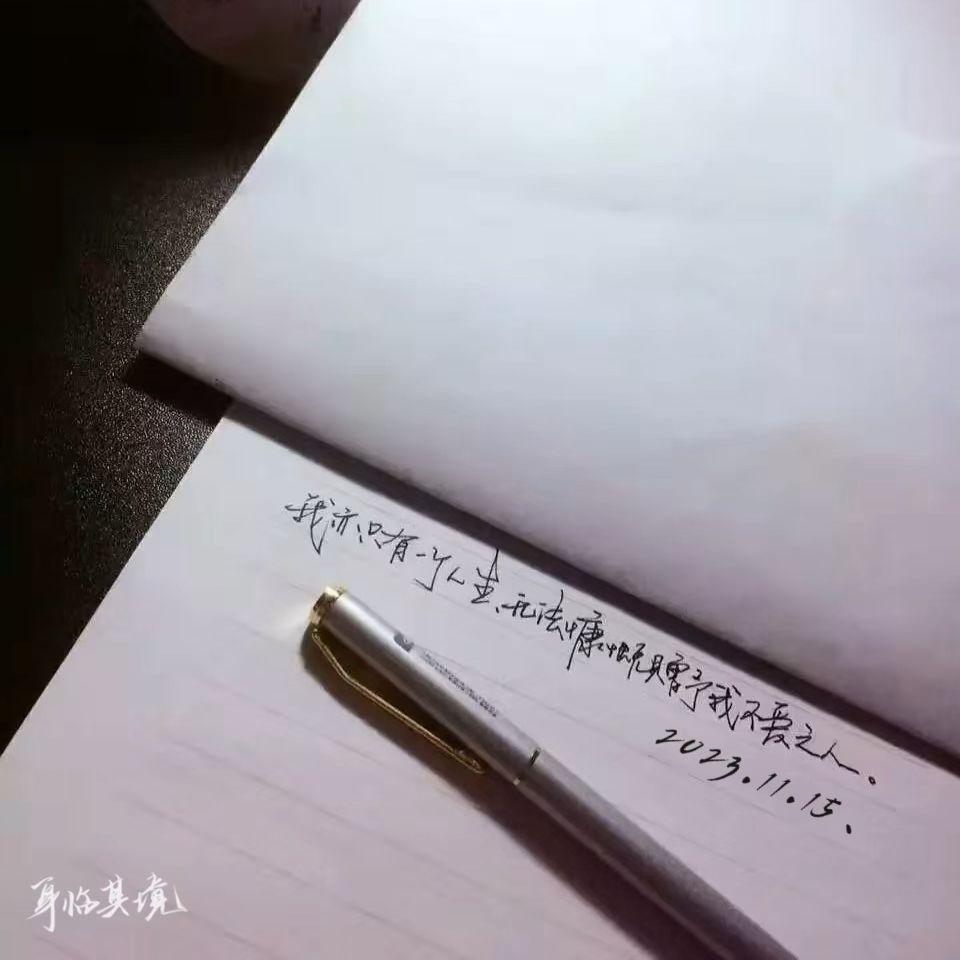 我亦只有一个人生、无法慷慨赠予我不爱之人。
2023.11.15、
身临其境